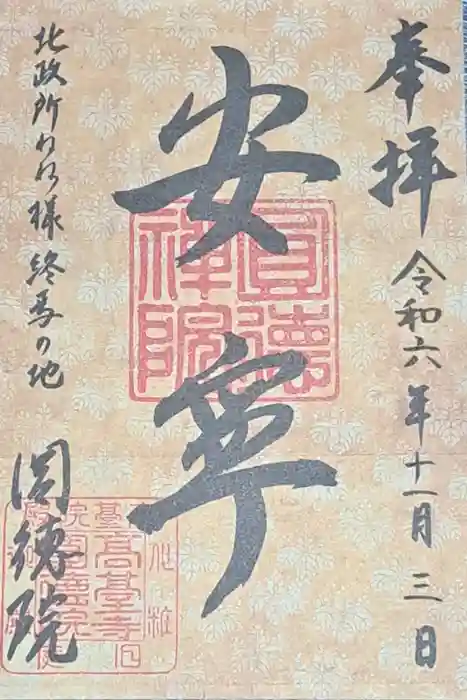 奉拝
令和六年十一月三日
安寧
北政所ねね様終焉の地
圓徳院
圓德
禅院
高臺寺